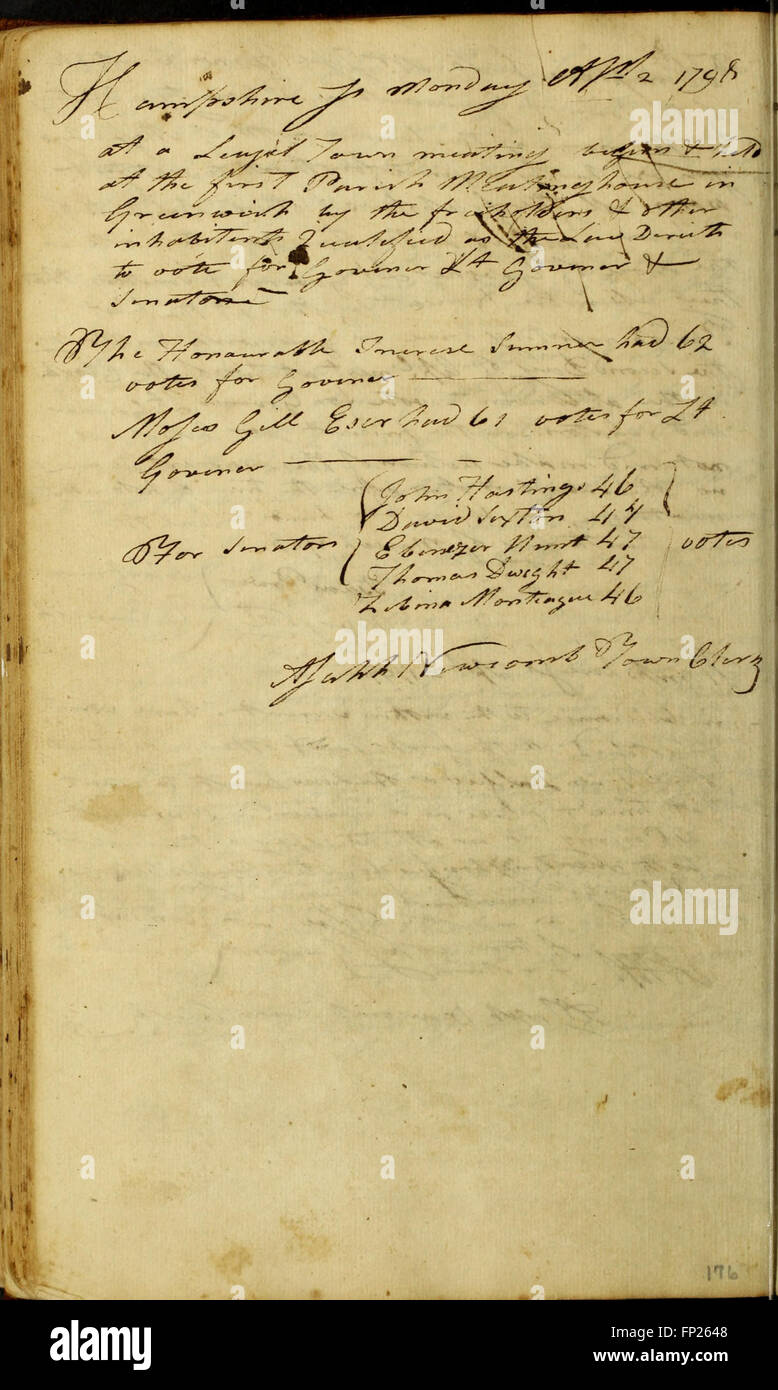 Hampshire Ss Monday Apl 2 1798
at a Leagal Town meeting begun & held
at the first Parish Meatinghouse in
Greenwich by the freeholders & other
inhabitents Qualified as the Law Directs
to vote for Govener Lt Govener &
Senators
The Honourable Increse Sumner had 62
votes for Govener
Moses Gill Esqr had 61 votes for Lt
Govener
John Hastings 46
David Sexton 47
For Senators Ebenezer Hunt 47 votes
Thomas Dwight 47
Zebina Monteague 46
Newcomb Town Clerk
176
alamy
Image ID: FP2648
www.alamy.com